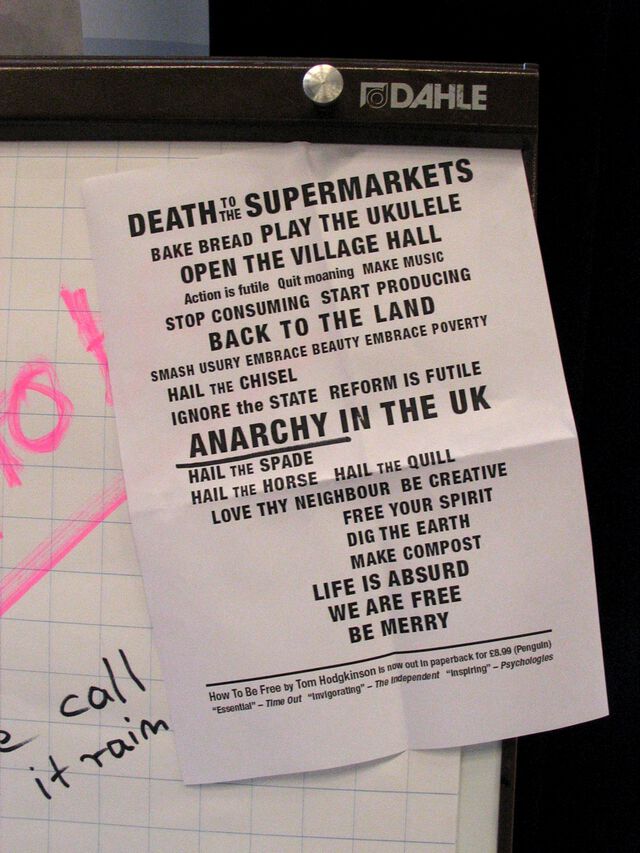 DAHLE
DEATH TO THE SUPERMARKETS
BAKE BREAD PLAY THE UKULELE
OPEN THE VILLAGE HALL
Action is futile Quit moaning MAKE MUSIC
STOP CONSUMING START PRODUCING
BACK TO THE LAND
SMASH USURY EMBRACE BEAUTY EMBRACE POVERTY
HAIL THE CHISEL
IGNORE the STATE REFORM IS FUTILE
ANARCHY IN THE UK
HAIL THE SPADE
HAIL THE HORSE HAIL THE QUILL
LOVE THY NEIGHBOUR BE CREATIVE
FREE YOUR SPIRIT
DIG THE EARTH
MAKE COMPOST
LIFE IS ABSURD
WE ARE FREE
BE MERRY
How To Be Free by Tom Hodgkinson is now out in paperback for £8.99 (Penguin)
"Essential" – Time Out "Invigorating" – The Independent "Inspiring" – Psychologies
call
it rain